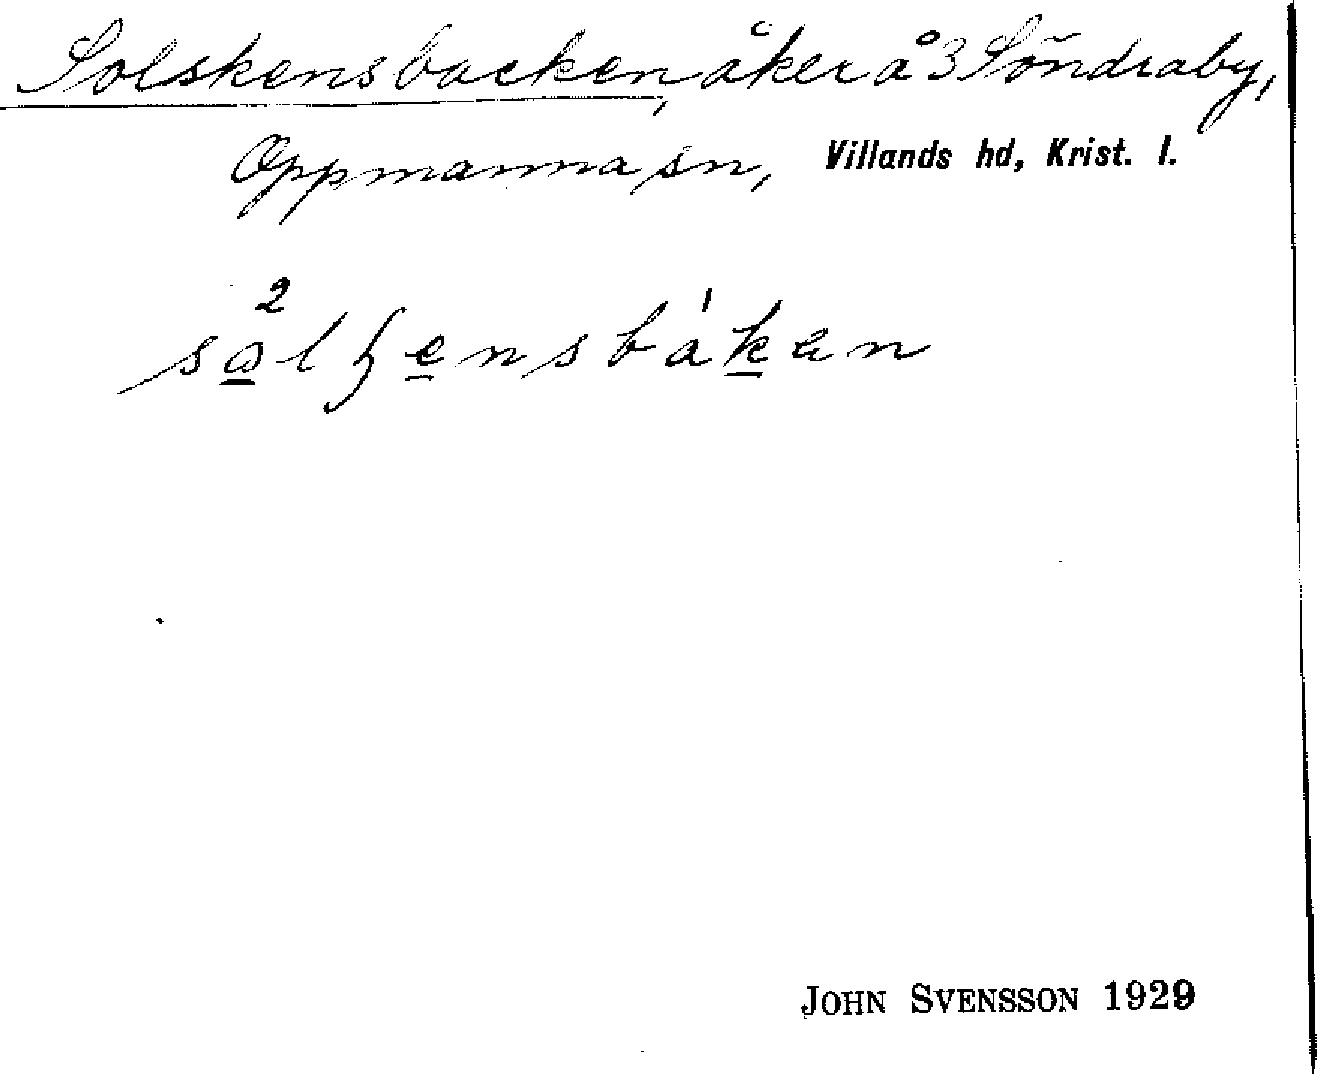 Solskensbacken, åker å 3 Söndraby,
Oppmanna sn, Villands hd, Krist. l.
JOHN SVENSSON 1929